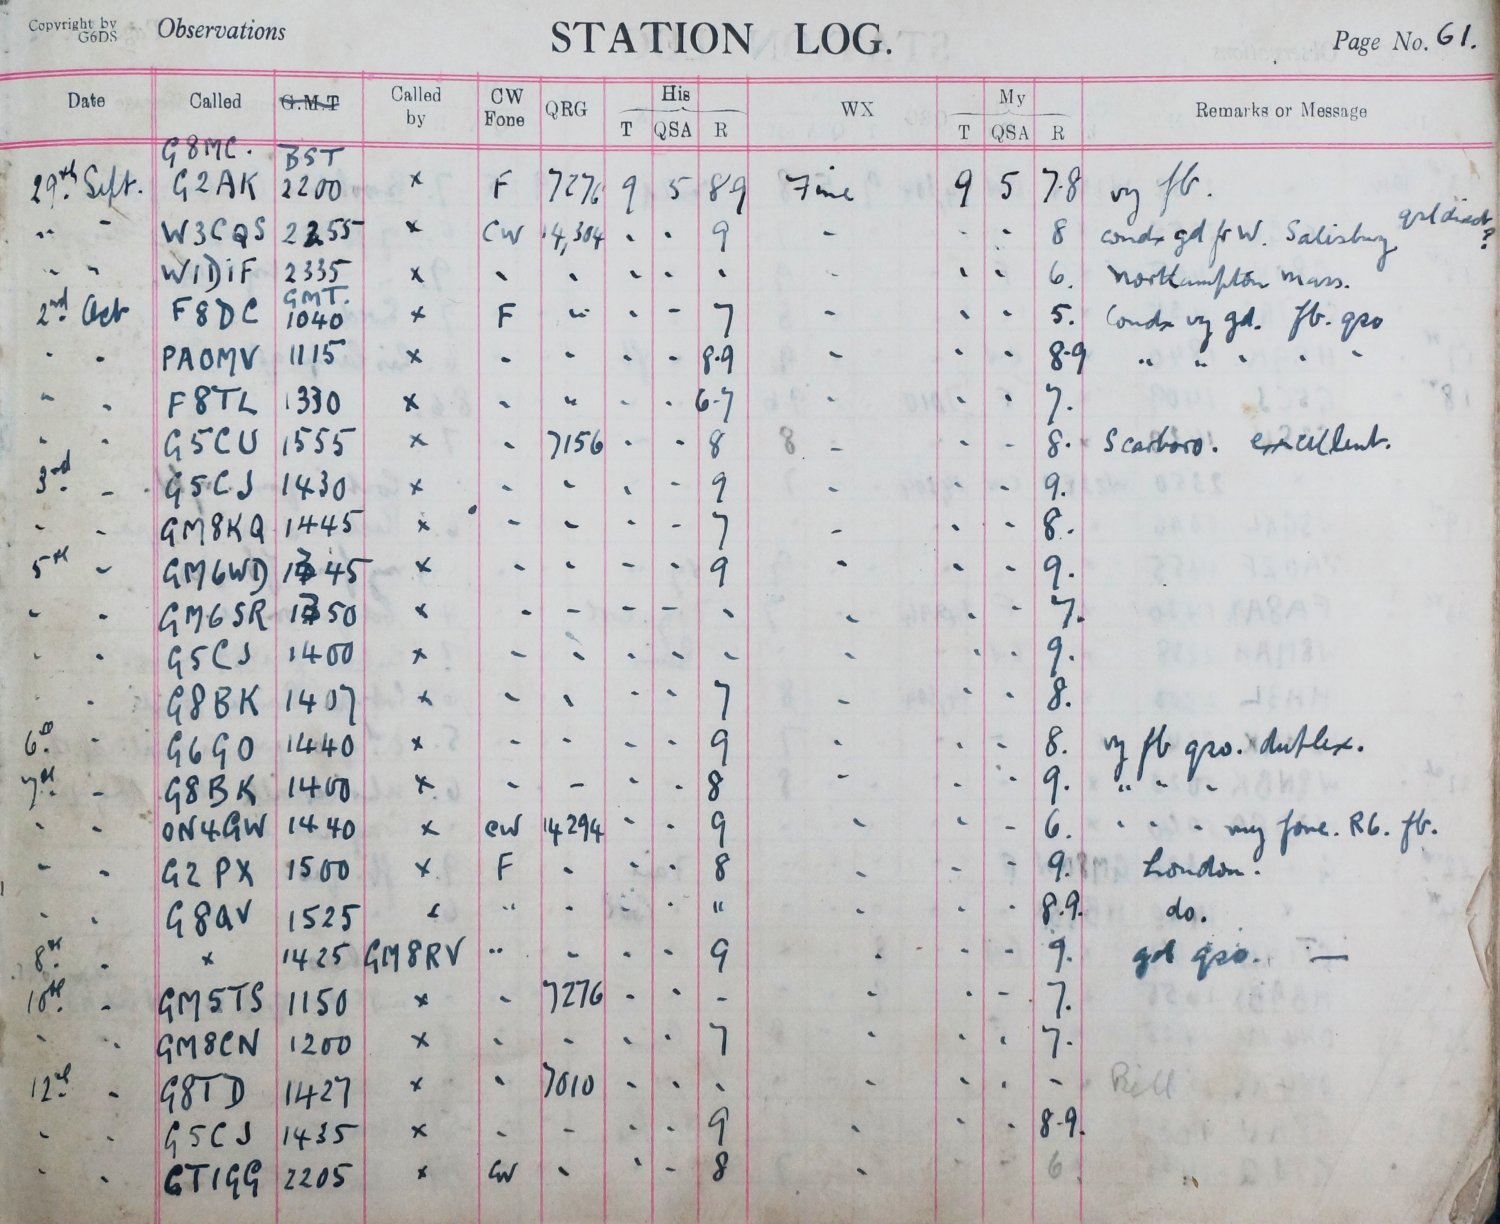 Copyright by G6DS Observations STATION LOG. Page No. 61.
Date Called G.M.T Called by CW Fone QRG His T QSA R WX My T QSA R Remarks or Message
G8MC. BST
29th Sept. G2AK 2200 x F 7276 9 5 8 9 Fine 9 5 7-8 vy fb.
" - W3CQS 2255 x CW 14,304 - - 9 - - - 8 condx gd fr W. Salisbury qrl direct?
" " W1DIF 2335 x - - - - - - - - 6. Northampton Mass.
GMT.
2nd Oct F8DC 1040 x F " - - 7 - - - 5. Condx vy gd. fb. qso
" - PA0MV 1115 x - - - - 8-9 - - - 8-9 " " " " "
" - F8TL 1330 x - " - - 6-7 - - - 7.
" - G5CU 1555 x - 7156 - - 8 - - - 8. Scarboro. excellent.
3rd - G5CJ 1430 x - - - - 9 - - - 9.
- - GM8KQ 1445 x - - - - 7 - - - 8.
5th - GM6WD 1345 x - - - - 9 - - - 9.
- - GM6SR 1350 x - - - - - - - - 7.
- - G5CJ 1400 x - - - - - - - - 9.
- - G8BK 1407 x - - - - 7 - - - 8.
6th - G6GO 1440 x - - - - 9 - - - 8. vy fb qso. duplex.
7th - G8BK 1400 x - - - - 8 - - - 9. " - -
- - ON4GW 1440 x CW 14294 - - 9 - - - 6. " - - my fone. R6. fb.
- - G2PX 1500 x F - - - 8 - - - 9. London.
- - G8QV 1525 x " - - - " - - - 8.9. do.
8th - x 1425 GM8RV " - - - 9 - - - 9. gd qso. —
10th - GM5TS 1150 x - 7276 - - - - - 7.
- - GM8CN 1200 x - - - - 7 - - - 7.
12th - G8TD 1427 x - 7010 - - - - - - - Bill
- - G5CJ 1435 x - - - - 9 - - - 8-9.
- - GT1GG 2205 x CW - - - 8 - 6